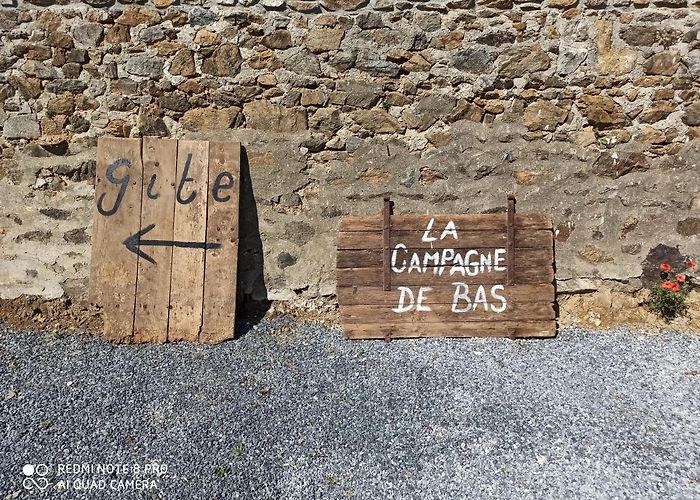 gite
LA
CAMPAGNE
DE BAS
REDMI NOTE 8 PRO
AI QUAD CAMERA